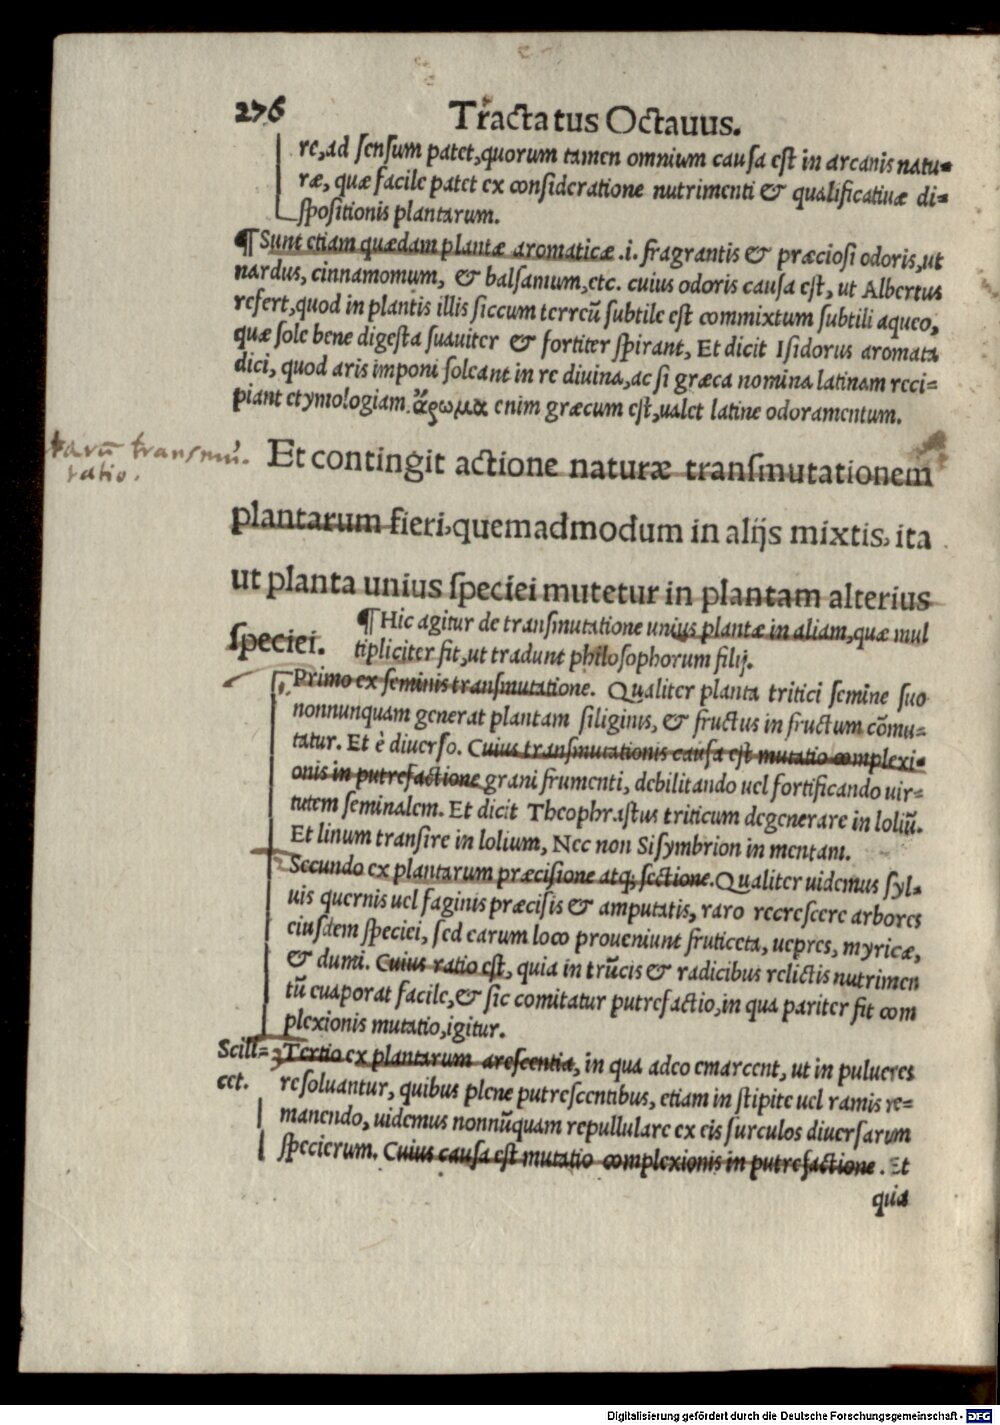 276
Tractatus Octauus.
re,ad ſenſum patet,quorum tamen omnium cauſa eſt in arcanis natu=
ræ, quæ facile patet ex conſideratione nutrimenti & qualificatiuæ di=
ſpoſitionis plantarum.
¶ Sunt etiam quædam plantæ aromaticæ .i. fragrantis & præcioſi odoris,ut
nardus, cinnamomum, & balſamum,etc. cuius odoris cauſa eſt, ut Albertus
refert,quod in plantis illis ſiccum terreũ ſubtile eſt commixtum ſubtili aqueo,
quæ ſole bene digeſta ſuauiter & fortiter ſpirant, Et dicit Iſidorus aromata
dici, quod aris imponi ſoleant in re diuina,ac ſi græca nomina latinam reci=
piant etymologiam. ἄρωμα enim græcum eſt,ualet latine odoramentum.
tarũ transmu̅.
tatio.
Et contingit actione naturæ tranſmutationem
plantarum fieri,quemadmodum in alijs mixtis, ita
ut planta unius ſpeciei mutetur in plantam alterius
ſpeciei.
¶ Hic agitur de tranſmutatione unius plantæ in aliam,quæ mul
tipliciter fit,ut tradunt philoſophorum filij.
Primo ex ſeminis tranſmutatione. Qualiter planta tritici ſemine ſuo
nonnunquam generat plantam ſiliginis, & fructus in fructum cõmu=
tatur. Et è diuerſo. Cuius tranſmutationis cauſa eſt mutatio complexi=
onis in putrefactione grani frumenti, debilitando uel fortificando uir=
tutem ſeminalem. Et dicit Theophraſtus triticum degenerare in loliũ.
Et linum tranſire in lolium, Nec non Siſymbrion in mentam.
Secundo ex plantarum præciſione atq; ſectione. Qualiter uidemus ſyl=
uis quernis uel faginis præciſis & amputatis, raro recreſcere arbores
eiuſdem ſpeciei, ſed earum loco proueniunt fruticeta, uepres, myricæ,
& dumi. Cuius ratio eſt, quia in trũcis & radicibus relictis nutrimen
tũ euaporat facile,& ſic comitatur putrefactio,in qua pariter fit com
plexionis mutatio,igitur.
Scill=
cet.
3 Tertio ex plantarum areſcentia, in qua adeo emarcent, ut in pulueres
reſoluantur, quibus plene putreſcentibus, etiam in ſtipite uel ramis re=
manendo, uidemus nonnũquam repullulare ex eis ſurculos diuerſarum
ſpecierum. Cuius cauſa eſt mutatio complexionis in putrefactione . Et
quia
Digitalisierung gefördert durch die Deutsche Forschungsgemeinschaft - DFG